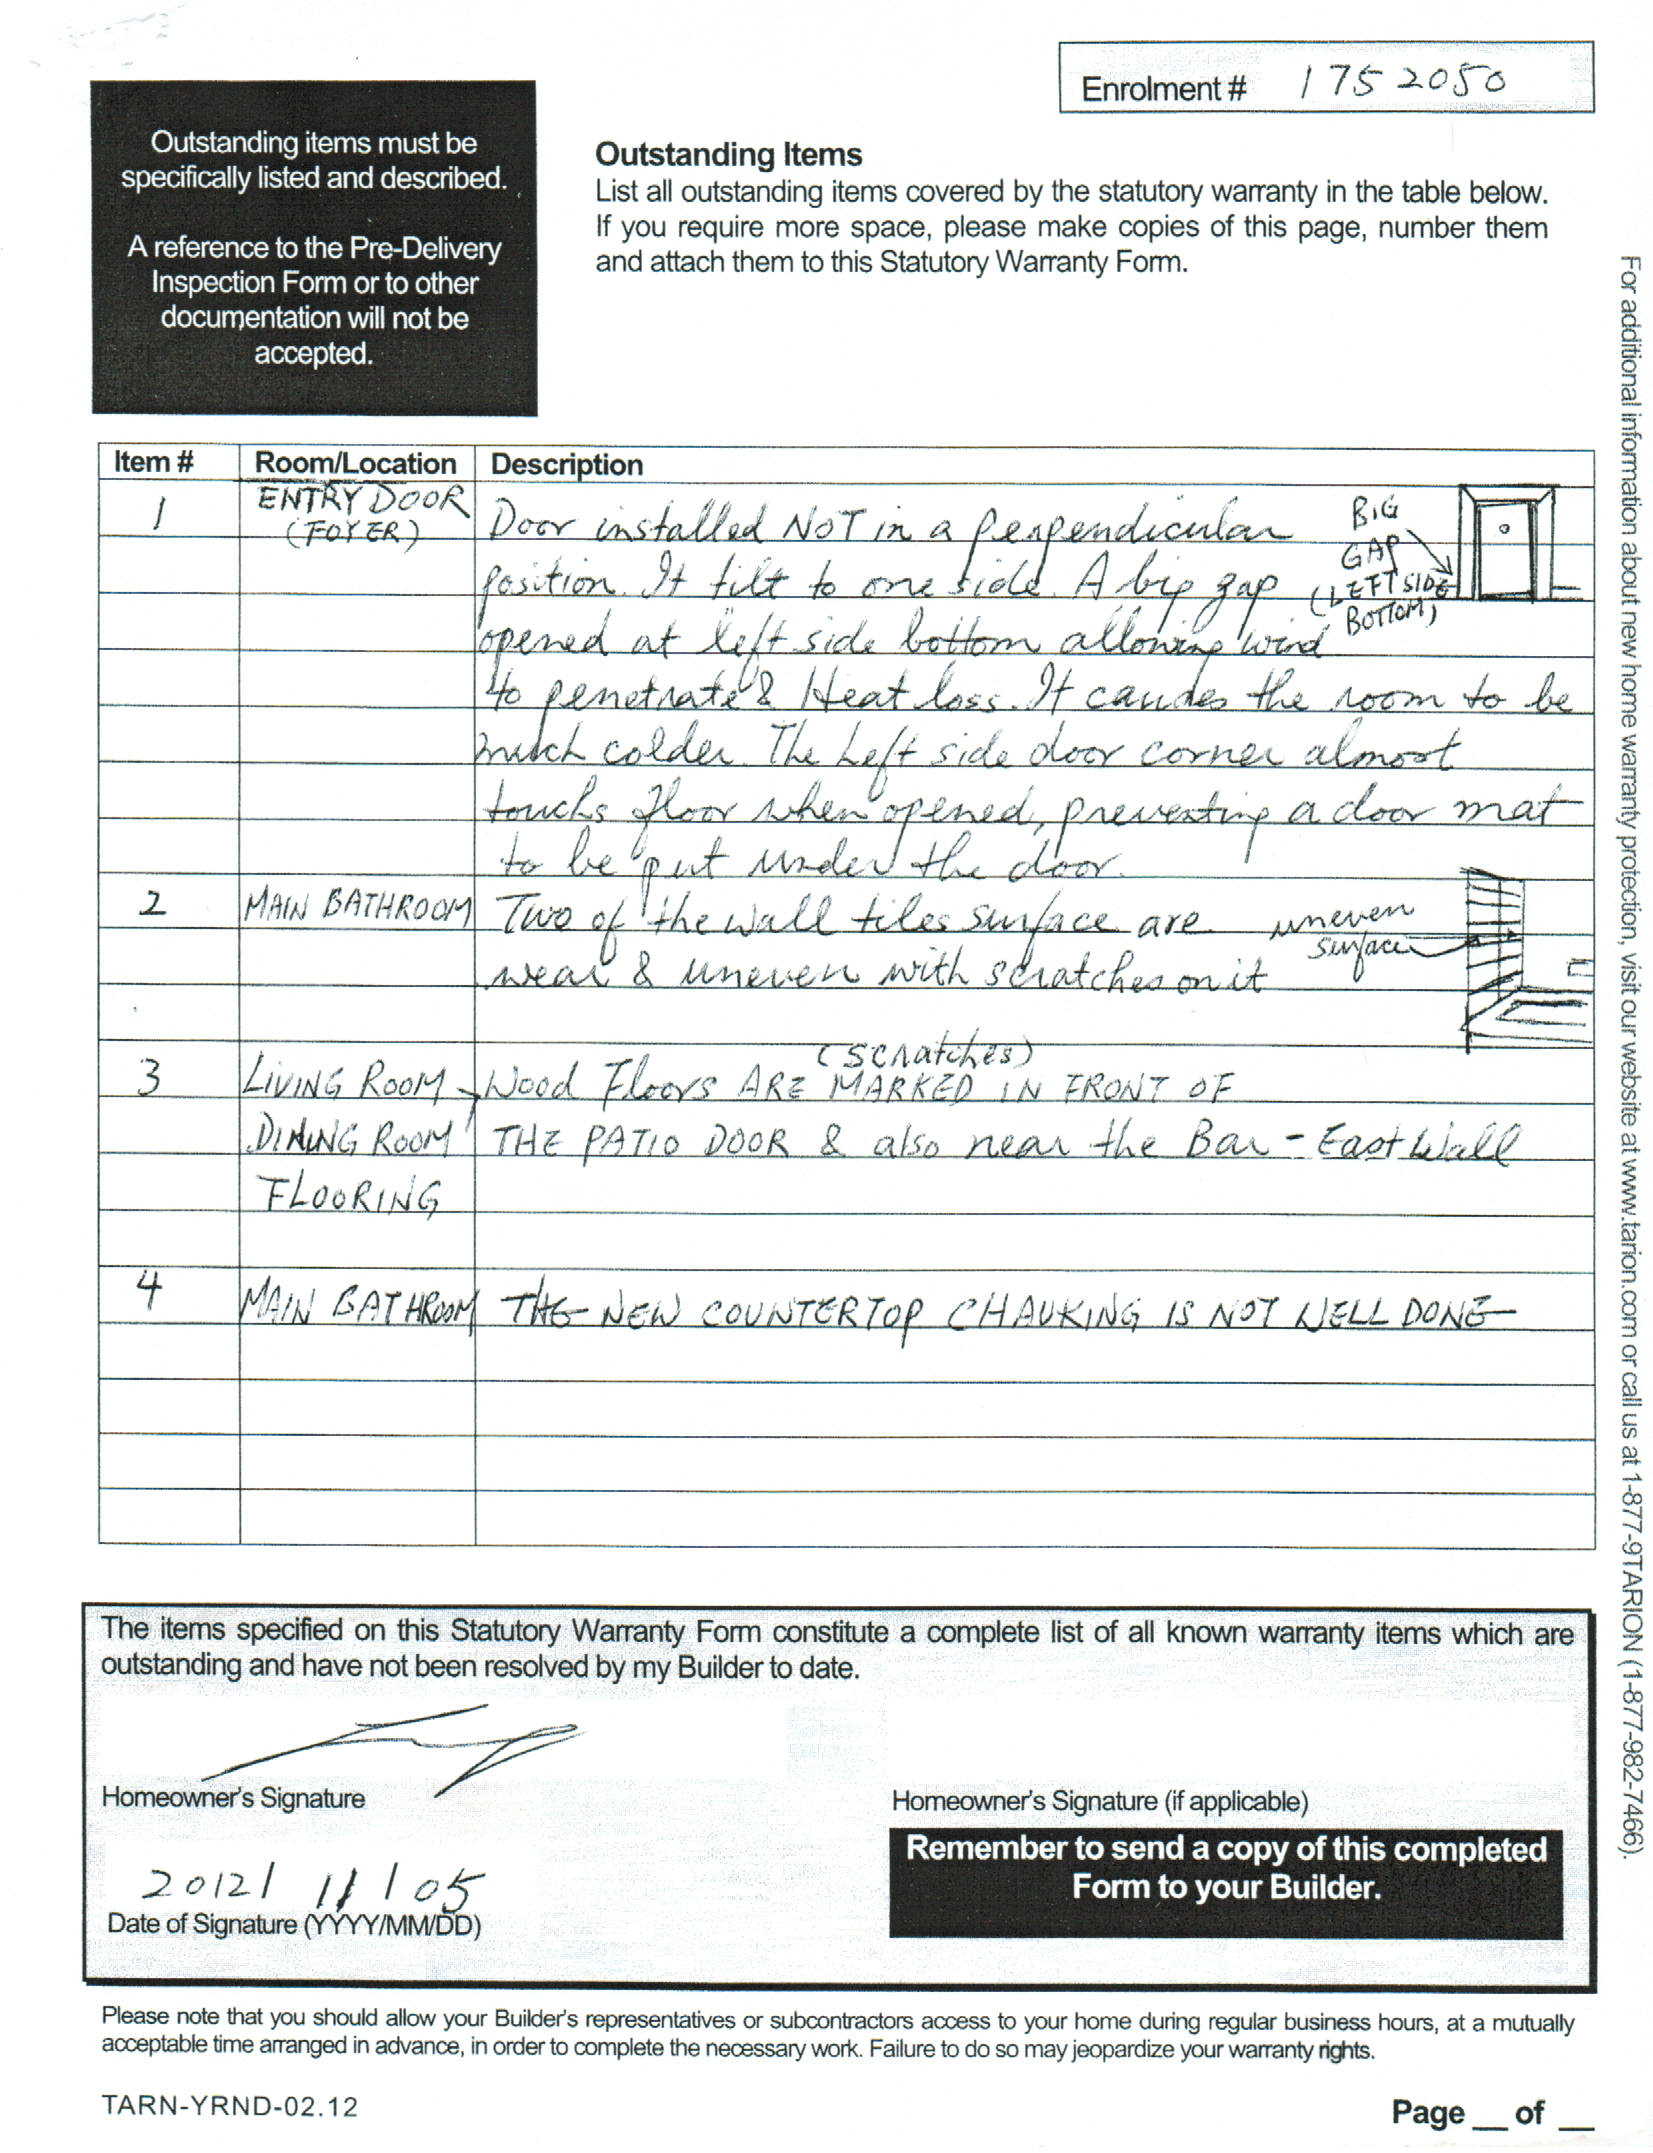 Enrolment # 1752050
Outstanding items must be
specifically listed and described.
A reference to the Pre-Delivery
Inspection Form or to other
documentation will not be
accepted.
Outstanding Items
List all outstanding items covered by the statutory warranty in the table below.
If you require more space, please make copies of this page, number them
and attach them to this Statutory Warranty Form.
Item # Room/Location Description
1 ENTRY DOOR (FOYER) Door installed NOT in a perpendicular
position. It tilt to one side. A big gap
opened at left side bottom allowing wind
to penetrate & Heat loss. It caudes the room to be
much colder. The Left side door corner almost
touchs floor when opened, preventing a door mat
to be put under the door.
BIG
GAP
(LEFT SIDE
BOTTOM)
2 MAIN BATHROOM Two of the wall tiles surface are
wear & uneven with scratches on it
uneven
surface
3 LIVING ROOM - Wood Floors ARE (scratches) MARKED IN FRONT OF
DINING ROOM THE PATIO DOOR & also near the Bar - East Wall
FLOORING
4 MAIN BATHROOM THE NEW COUNTERTOP CHAUKING IS NOT WELL DONE
The items specified on this Statutory Warranty Form constitute a complete list of all known warranty items which are
outstanding and have not been resolved by my Builder to date.
Homeowner's Signature
Homeowner's Signature (if applicable)
2012/ 11 / 05
Date of Signature (YYYY/MM/DD)
Remember to send a copy of this completed
Form to your Builder.
Please note that you should allow your Builder's representatives or subcontractors access to your home during regular business hours, at a mutually
acceptable time arranged in advance, in order to complete the necessary work. Failure to do so may jeopardize your warranty rights.
TARN-YRND-02.12
Page __ of __
For additional information about new home warranty protection, visit our website at www.tarion.com or call us at 1-877-9TARION (1-877-982-7466).